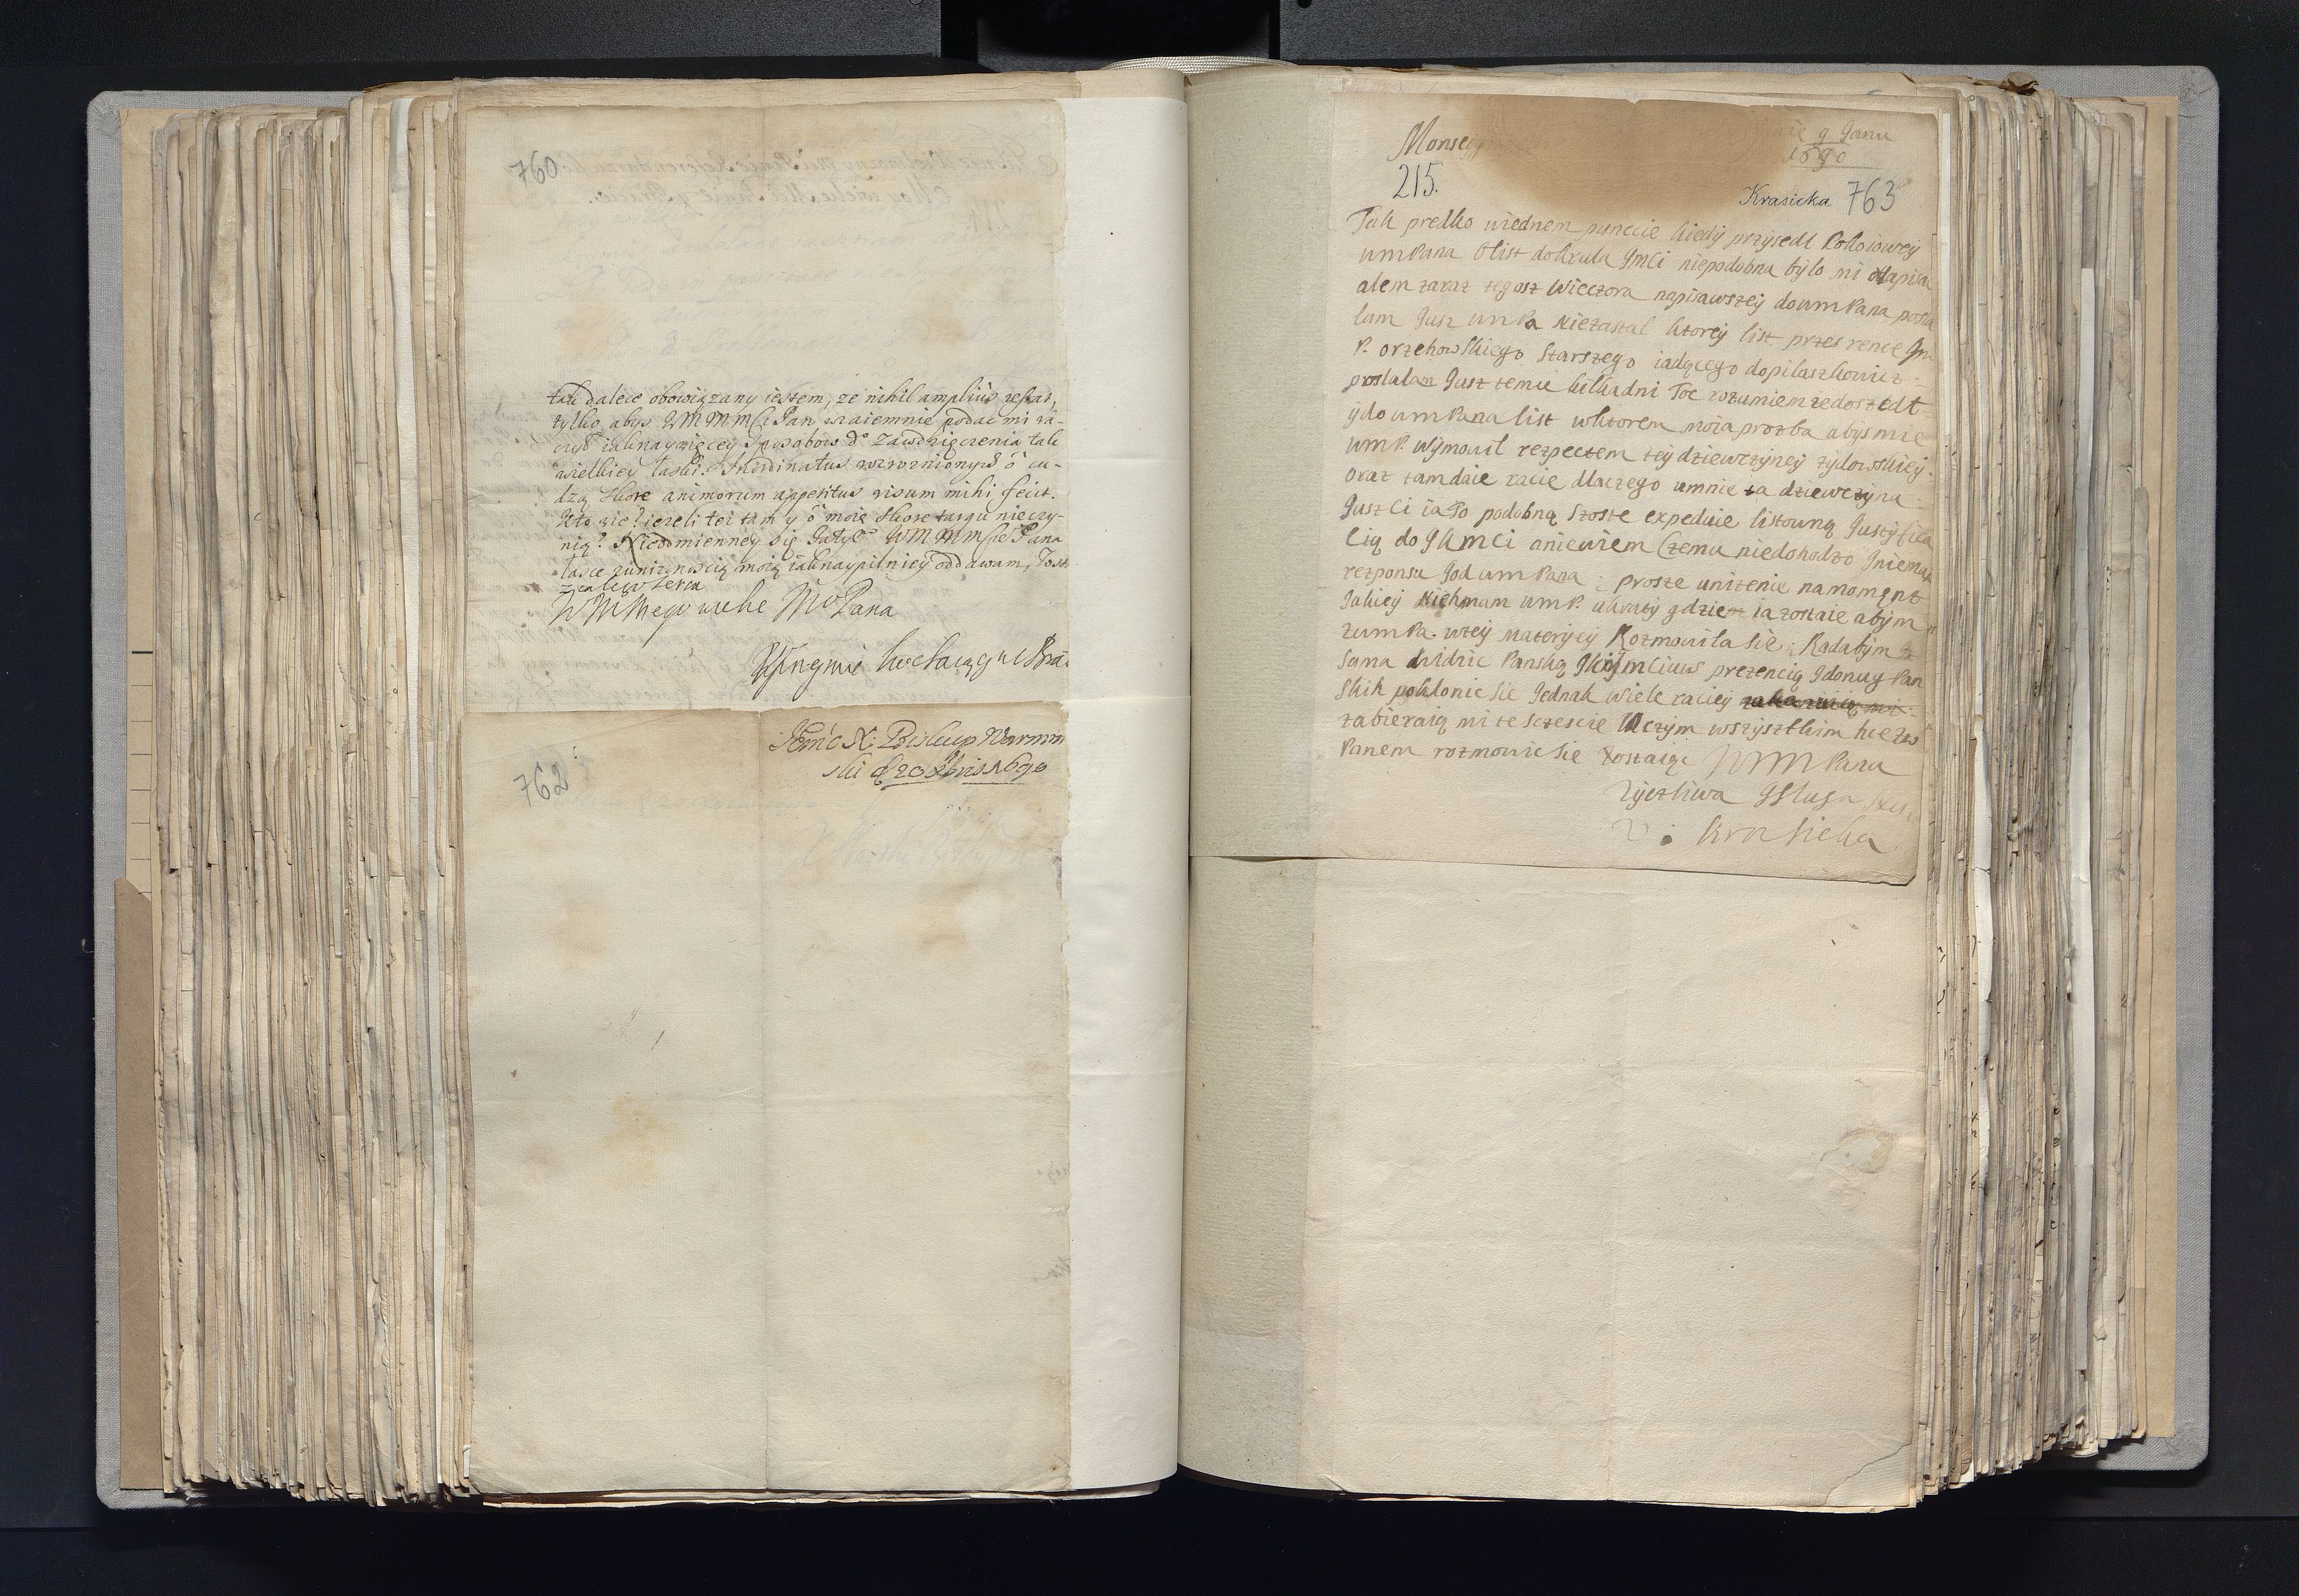 760
tak dalece obowiązany iestem, że nihil amplius restat,
tylko abyś WMMMCi Pan wzaiemnie podać mi ra-
czył iaknaywięcey sposobow do zawdzięczenia tak
wielkiey łaski. Inordinatus rozroznionych o cu-
dzą skore animorum appetitus risum mihi fecit.
Kto wie? ieżeli też tam y o moię skore targu nie czy-
nią? Nieodmienney się WMMMCie Pana
łasce z uniżonością moią iaknaypilniey oddawam, Iest
z całego serca
WMMego wielce Mo Pana
Uprzejmie
762
Jeomc X: Biskup Warmin
ski d 20 Xbris 1690
Monseg
g Janu
1690
215.
Krasicka 763
Tak predko wiednem puncie kiedy przysedl Pokoiowey
umPana O list do krula Jmci niepodobna bylo mi odapisac
alem zaraz tegosz Wieczora napisawszey do umPana posla
lam Jusz umPa niezastal ktorey list przes rence Jm
P. orzehowskiego Starszego iadącego do pilaszkowicz
poslalam Jusz temie kilka dni Toc rozumiem ze doszedl
y do umPana list wktorem moia prozba abys mie
umP. wymowil rezpectem tey dziewczyney zydowskiey
oraz tam daie racie dlaczego umnie ta dziewczyna
Juszci ia To podobną szoste expeduie listowną Justyfica
cią do JKmci aniewiem Czemu niedohodzo Jniemasz
rezponsu Jod umPana : prosze unizenie na moment
Jakiey niehmam umP. ukraty gdzie ia zostaie abym
zumPa. wtey materyiey Rozmowila sie : Radabym
sama widzic Panską prezencią Jdonug Pan
skih poklonic sie Jednak wiele raciey
zabieraią mi te sczescie Oczym wszysztkim hce zw
Panem rozmowic sie zostaiąc WMMPana
Zyczliwa Jsluga
Krasicka